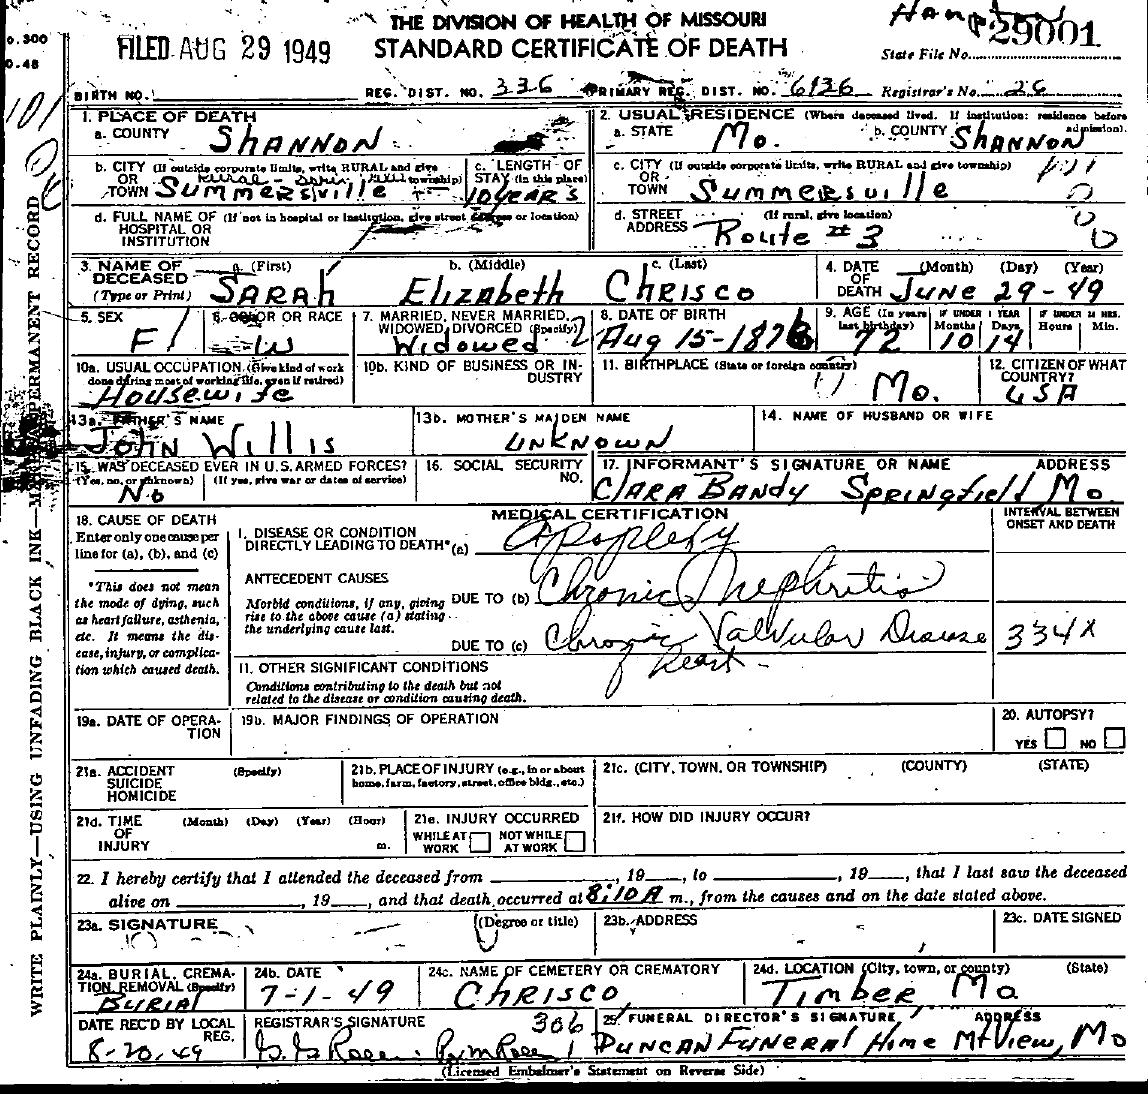 THE DIVISION OF HEALTH OF MISSOURI
STANDARD CERTIFICATE OF DEATH
FILED AUG 29 1949
State File No. 29001
0.300
0.48
BIRTH NO. REG. DIST. NO. 336 PRIMARY REG. DIST. NO. 6136 Registrar's No. 26
1. PLACE OF DEATH
a. COUNTY SHANNON
2. USUAL RESIDENCE (Where deceased lived. If institution: residence before admission).
a. STATE Mo. b. COUNTY SHANNON
b. CITY (If outside corporate limits, write RURAL and give township)
OR
TOWN Summersville
Rural
c. LENGTH OF STAY (in this place)
10 years
c. CITY (If outside corporate limits, write RURAL and give township)
OR
TOWN Summersville
d. FULL NAME OF (If not in hospital or institution, give street address or location)
HOSPITAL OR
INSTITUTION
d. STREET (If rural, give location)
ADDRESS Route #3
3. NAME OF DECEASED (Type or Print)
a. (First) b. (Middle) c. (Last)
SARAH Elizabeth Chrisco
4. DATE OF DEATH (Month) (Day) (Year)
June 29-49
5. SEX
F
6. COLOR OR RACE
W
7. MARRIED, NEVER MARRIED, WIDOWED, DIVORCED (Specify)
Widowed 2
8. DATE OF BIRTH
Aug 15-1876
9. AGE (In years last birthday) IF UNDER 1 YEAR Months Days IF UNDER 24 HRS. Hours Min.
72 10 14
10a. USUAL OCCUPATION (Give kind of work done during most of working life, even if retired)
Housewife
10b. KIND OF BUSINESS OR INDUSTRY
11. BIRTHPLACE (State or foreign country)
Mo.
12. CITIZEN OF WHAT COUNTRY?
USA
13a. FATHER'S NAME
John Willis
13b. MOTHER'S MAIDEN NAME
unknown
14. NAME OF HUSBAND OR WIFE
15. WAS DECEASED EVER IN U.S. ARMED FORCES?
(Yes, no, or unknown) (If yes, give war or dates of service)
No
16. SOCIAL SECURITY NO.
17. INFORMANT'S SIGNATURE OR NAME ADDRESS
Clara Bandy Springfield Mo.
18. CAUSE OF DEATH
Enter only one cause per line for (a), (b), and (c)
*This does not mean the mode of dying, such as heart failure, asthenia, etc. It means the disease, injury, or complication which caused death.
MEDICAL CERTIFICATION
INTERVAL BETWEEN ONSET AND DEATH
I. DISEASE OR CONDITION
DIRECTLY LEADING TO DEATH* (a) Apoplexy
ANTECEDENT CAUSES
Morbid conditions, if any, giving rise to the above cause (a) stating the underlying cause last.
DUE TO (b) Chronic Nephritis
DUE TO (c) Chronic Valvular Disease of heart.
334X
11. OTHER SIGNIFICANT CONDITIONS
Conditions contributing to the death but not related to the disease or condition causing death.
19a. DATE OF OPERATION
19b. MAJOR FINDINGS OF OPERATION
20. AUTOPSY?
YES NO
21a. ACCIDENT SUICIDE HOMICIDE (Specify)
21b. PLACE OF INJURY (e.g., in or about home, farm, factory, street, office bldg., etc.)
21c. (CITY, TOWN, OR TOWNSHIP) (COUNTY) (STATE)
21d. TIME OF INJURY (Month) (Day) (Year) (Hour) m.
21e. INJURY OCCURRED
WHILE AT WORK NOT WHILE AT WORK
21f. HOW DID INJURY OCCUR?
22. I hereby certify that I attended the deceased from , 19 , to , 19 , that I last saw the deceased
alive on , 19 , and that death occurred at 8:10 A m., from the causes and on the date stated above.
23a. SIGNATURE (Degree or title)
23b. ADDRESS
23c. DATE SIGNED
24a. BURIAL, CREMATION, REMOVAL (Specify)
Burial
24b. DATE
7-1-49
24c. NAME OF CEMETERY OR CREMATORY
Chrisco
24d. LOCATION (City, town, or county) (State)
Timber Mo
DATE REC'D BY LOCAL REG.
8-20-49
REGISTRAR'S SIGNATURE
306
25. FUNERAL DIRECTOR'S SIGNATURE ADDRESS
Duncan Funeral Home Mt View, Mo
(Licensed Embalmer's Statement on Reverse Side)
WRITE PLAINLY—USING UNFADING BLACK INK—MAKE PERMANENT RECORD